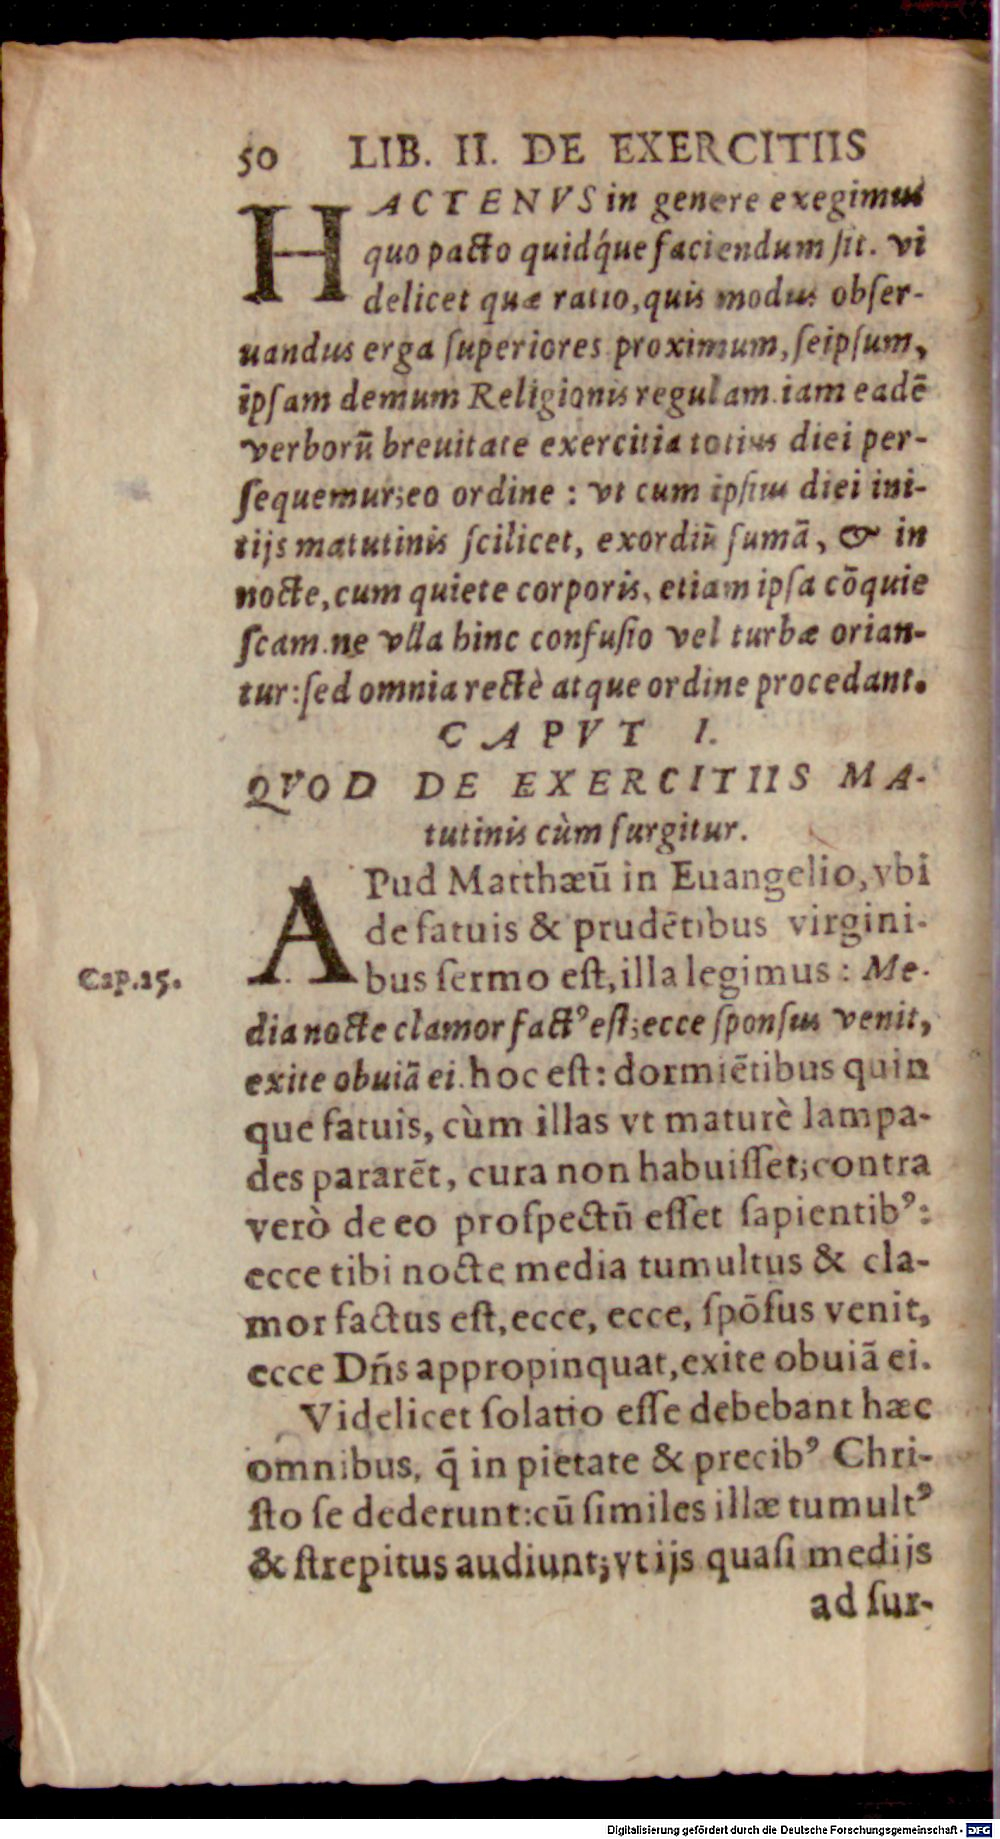 50 LIB. II. DE EXERCITIIS
HACTENVS in genere exegimus
quo pacto quidq́ue faciendum ſit. vi
delicet quæ ratio, quis modus obſer-
uandus erga ſuperiores proximum, ſeipſum,
ipſam demum Religionis regulam. iam eadē
verborū breuitate exercitia totius diei per-
ſequemur; eo ordine : vt cum ipſius diei ini-
tijs matutinis ſcilicet, exordiū ſumā, & in
nocte, cum quiete corporis, etiam ipſa cōquie
ſcam. ne vlla hinc confuſio vel turbæ orian-
tur: ſed omnia rectè atque ordine procedant.
CAPVT I.
QVOD DE EXERCITIIS MA-
tutinis cùm ſurgitur.
APud Matthæū in Euangelio, vbi
de fatuis & prudētibus virgini-
bus ſermo eſt, illa legimus : Me-
Cap. 25.
dia nocte clamor factꝰ eſt; ecce ſponſus venit,
exite obuiā ei. hoc eſt: dormiētibus quin
que fatuis, cùm illas vt maturè lampa-
des pararēt, cura non habuiſſet; contra
verò de eo proſpectū eſſet ſapientibꝰ:
ecce tibi nocte media tumultus & cla-
mor factus eſt, ecce, ecce, ſpōſus venit,
ecce Dn̄s appropinquat, exite obuiā ei.
Videlicet ſolatio eſſe debebant hæc
omnibus, q̄ in pietate & precibꝰ Chri-
ſto ſe dederunt: cū ſimiles illæ tumultꝰ
& ſtrepitus audiunt; vt ijs quaſi medijs
ad ſur-
Digitalisierung gefördert durch die Deutsche Forschungsgemeinschaft - DFG